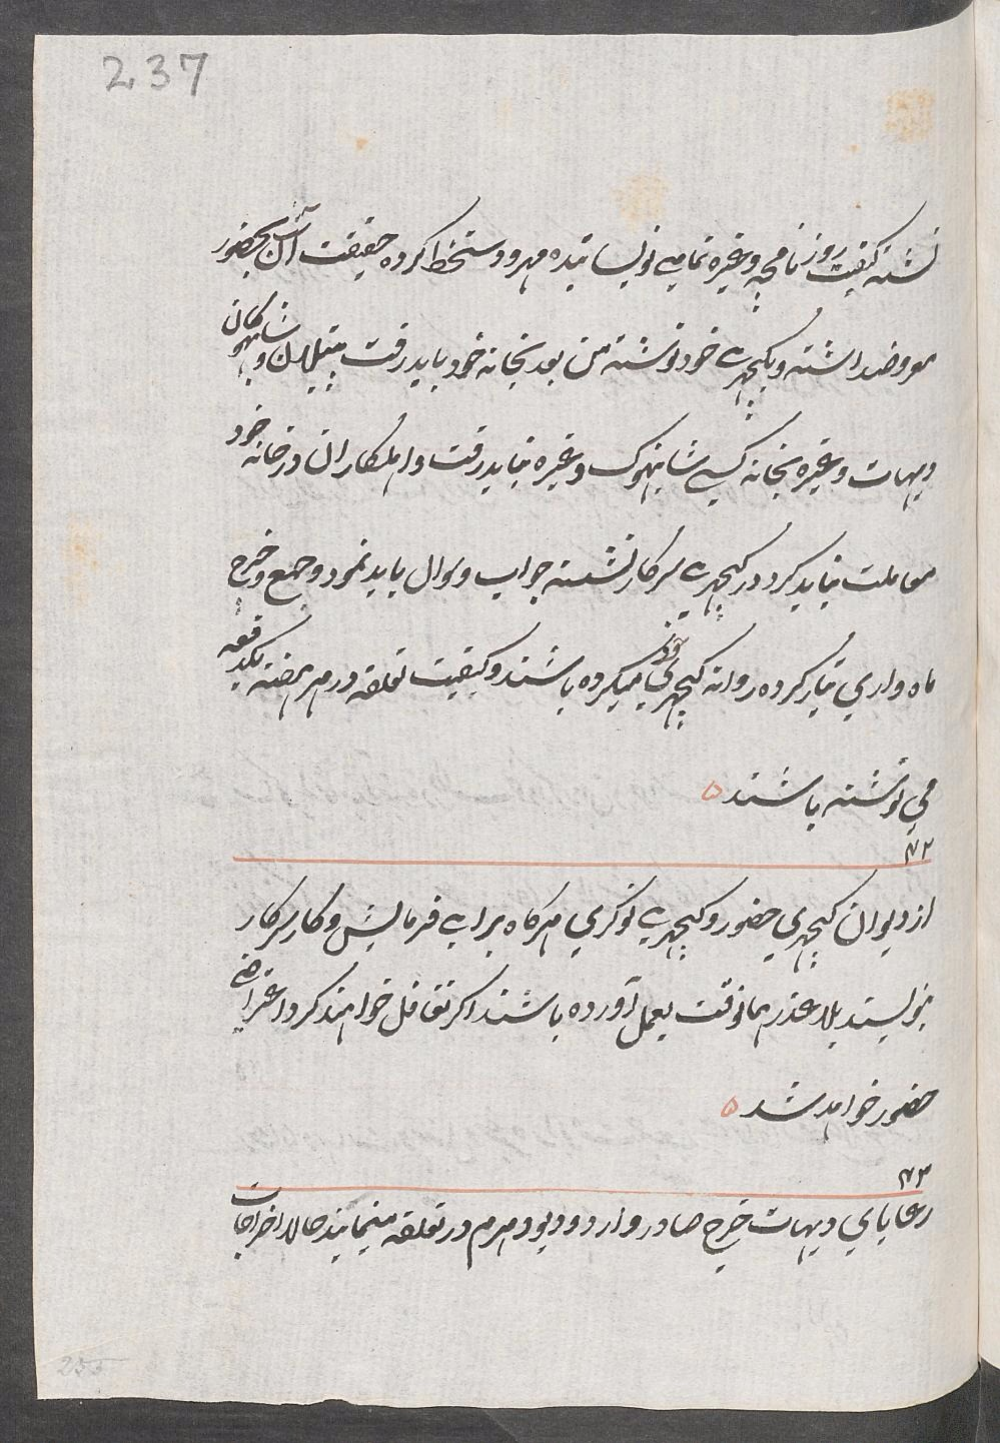 237
نشته کیفیت روزنامچه وغیره تمامی نویسانیده مهر و دستخط کرده حقیقت آن بحضور
معروضداشته و بکچهری خود نوشته من بعد بخانه خود باید رفت بتیلان و شانبهوکان
دیهات وغیره بخانه کسی شانبهوک وغیره نباید رفت و اهلکاران در خانه خود
معاملت نباید کرد در کچهری سرکار نشسته جواب و سوال باید نمود و جمع و خرچ
ماه واری تیار کرده روانه کچهری میکرده باشند و کیفیت تعلقه در هر هفته یکدفعه
می نوشته باشند ۵
۷۲
از دیوان کچهری حضور و کچهری نوکری هرکاه برای فرمایش و کار سرکار
بنویسند بلا عذر همانوقت بعمل آورده باشند اکر تغافل خواهند کرد اعتراضی
حضور خواهد شد ۵
۷۳
رعایای دیهات خرچ صادر وارد و دیود هرم در تعلقه مینمایند حالا اخراجات
255